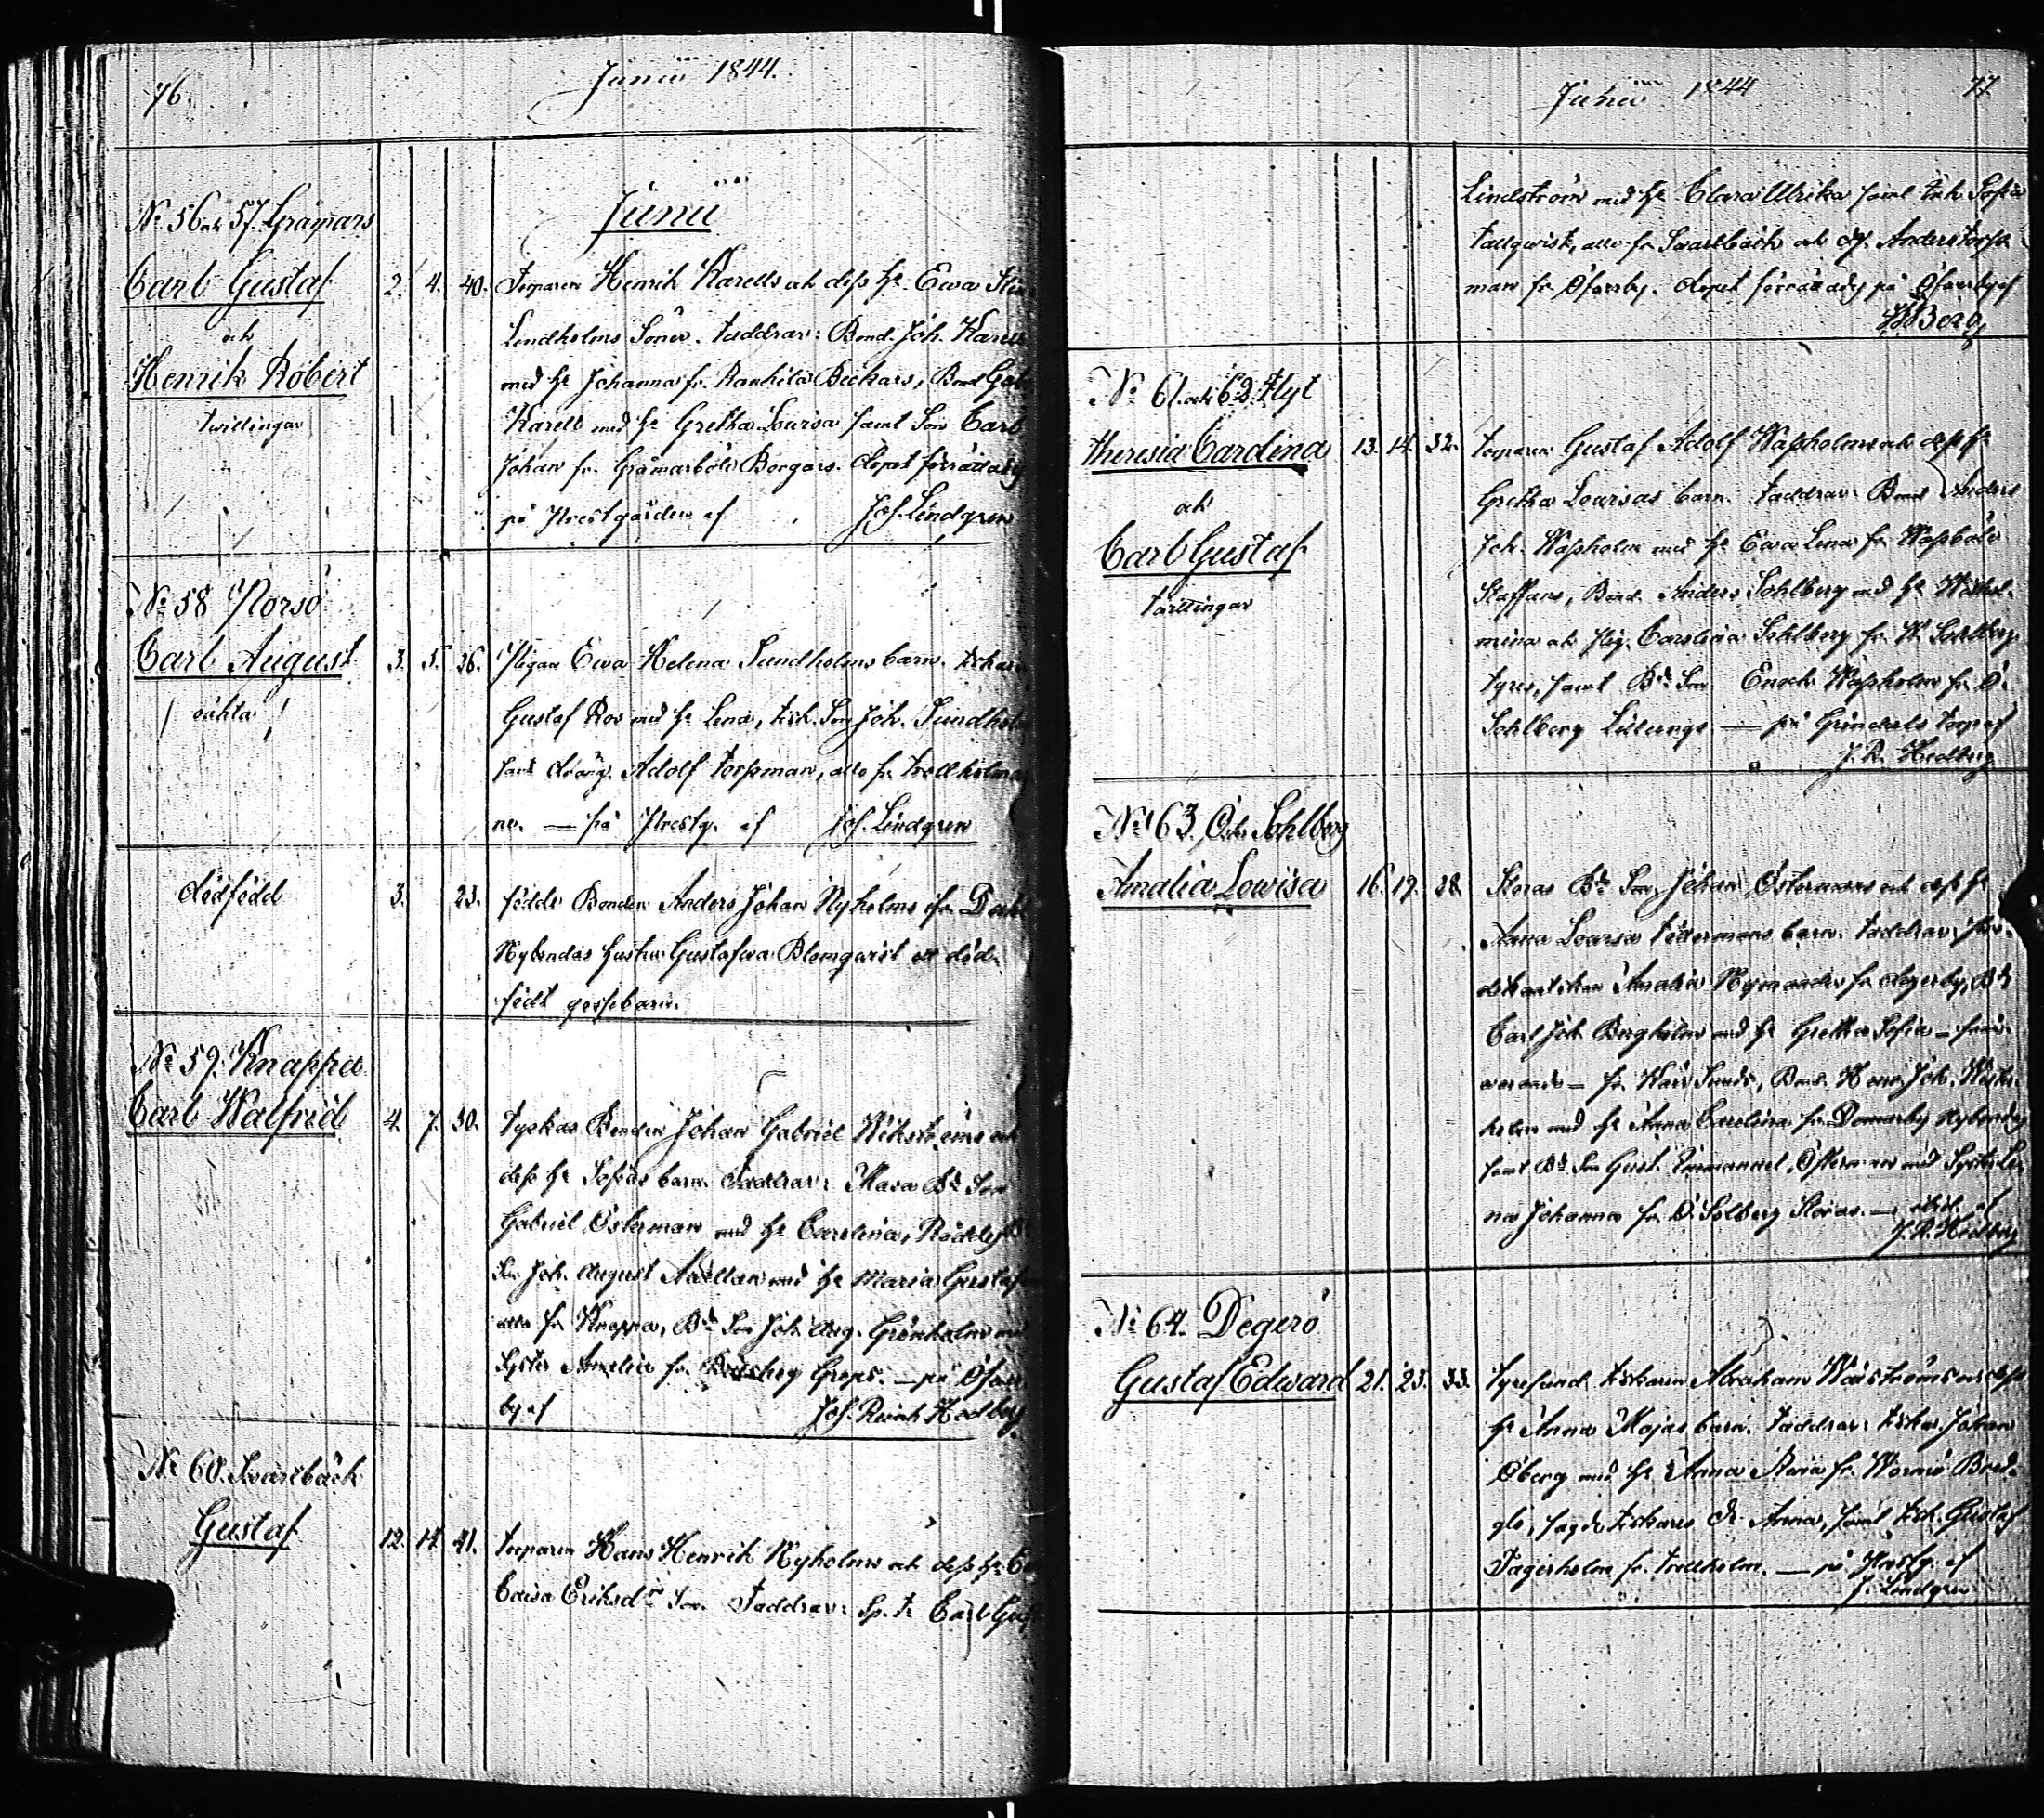 76.
Junii 1844.
Junii
No 56 och 57. Gråmars
Carl Gustaf 2. 4. 40. Torparen Henrik Karells och dess hu Ewa Stin
och
Lindholms Söner. Faddrar: Bond. Joh. Karell
Henrik Robert
med hu Johanna fr. Beckars, Bond Gab
twillingar
Karell med hu Gretha Lowisa samt Son Carl
Johan fr. Gråmarböle Borgars. Döpt förrättadig
på Prestgården af Joh. Lindgren
No 58 Norsö
Carl August 3. 5. 26. Pigan Ewa Helena Sundholms barn. Fiskaren
/ oächta /
Gustaf Ros med hu Lena, Fisk. Son Joh. Sundholm
samt dräng. Adolf Forsman, alla fr. Trollholma
ne. — på Prestg. af Joh. Lindgren
dödfödd 3. 23. födde Bonden Anders Johan Nyholms ifr. Dahl
Nybondas hustru Gustafwa Blomqwist ett död-
födt gossebarn.
No 59. Knappa
Carl Walfrid 4. 7. 30. Tyskas Bonden Johan Gabriel Wikströms och
dess hu Sofias barn. Faddrar: Masa Bde Son
Gabriel Österman med hu Carolina,
Son Joh. August med hu Maria Gustaf
alla fr. Knappa, Bde Son Joh. Aug. Grönholm med
Syster Amalia fr. Greps. — på Ofan
by af Joh. Reinh Hedberg
No 60. Swartbäck
Gustaf 12. 14. 41. Torparen Hans Henrik Nyholms och dess hu
Caisa Eriksdrs Son. Faddrar: Sp. Tr. Carl Gust
Junii 1844
77
Lindström med hu Clara Ulrika samt Enk. Sofia
Tallqwist, alla fr. Swartbäck och dg. Anders Fors
man fr. Ofanby. Döpet förrättadg på Ofanby af
Berg
No 61. och 62. Flyt
Theresia Carolina 13. 14. 32. Torparen Gustaf Adolf Wassholms och dess hu
Gretha Lowisas barn. Faddrar: Bond Anders
och
Joh. Wassholm med hu Ewa Lena fr. Wassböle
Carl Gustaf
Staffans, Bond. Anders Sohlberg med hu Wilhel-
twillingar
mina och Pig. Carolina Sohlberg fr. W. Sohlberg
samt Bde Son Enoch Wassholm fr. Ö.
Sohlberg Lillunge — på Grindals torp af
J. R. Hedberg
No 63. Öster Sohlberg
Amalia Lowisa 16. 19. 28. Storas Bde Son Johan Östermans och dess hu
Anna Lowisa Födermans barn. Faddrar:
Amalia Nymander fr. Degerby, Bde
Carl Joh Bergholm med hu Gretha Sofia — från-
warande — fr. Sunds, Bond. Hans Joh.
holm med hu Anna Carolina fr. Domarby Nybondas
samt Bde Son Gust. Emmanuel Österman med Syster Le
na Johanna fr. Ö. Solberg Storas. — ibid. af
J. R. Hedberg
No 64. Degerö
Gustaf Edward 21. 23. 33. Tyresund Fiskaren Abraham och dess
hu Anna Majas barn. Faddrar: Fiskar. Johan
Öberg med hu Anna Maria fr. Wormö Bred-
Fiskares dr Anna, samt Fisk. Gustaf
Fagerholm fr. Trollholm. — på Prestg. af
J. Lindgren